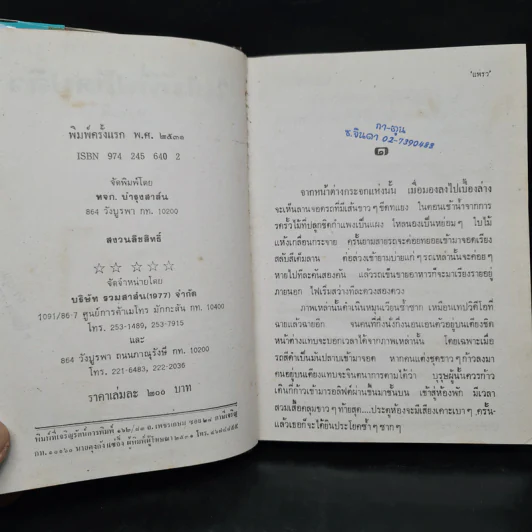 พิมพ์ครั้งแรก พ.ศ. ๒๕๓๑
ISBN 974 245 640 2
จัดพิมพ์โดย
หจก. บำรุงสาส์น
864 วังบูรพา กท. 10200
สงวนลิขสิทธิ์
☆☆ ☆☆☆
จัดจำหน่ายโดย
บริษัท รวมสาส์น(1977) จำกัด
1091/86-7 ศูนย์การค้าเมโทร มักกะสัน กท. 10400
โทร. 253-1489, 253-7915
และ
864 วังบูรพา ถนนภาณุรังษี กท. 10200
โทร. 221-6483, 222-2036
ราคาเล่มละ ๒๐๐ บาท
'แพรว'
กา-ลูน
ช.จินดา 02-7390488
๑
จากหน้าต่างกระจกแห่งนั้น เมื่อมองลงไปเบื้องล่าง
จะเห็นลานจอดรถที่มีเส้นขาว ๆ ขีดทแยง ในตอนเช้าน้ำจากการ
รดรั้วไม้ที่ปลูกชิดกำแพงเป็นแผง ไหลนองเป็นหย่อม ๆ ใบไม้
แห้งเกลื่อนกระจาย ครั้นยามสายรถจะค่อยทยอยเข้ามาจอดเรียง
สลับสีเต็มลาน ต่อล่วงเข้ายามบ่ายแก่ ๆ รถเหล่านั้นจะค่อย ๆ
หายไปทีละคันสองคัน แล้วรถเข็นขายอาหารก็จะมาเรียงรายอยู่
ภายนอก ไฟเริ่มสว่างทีละดวงสองดวง
ภาพเหล่านั้นดำเนินหมุนเวียนซ้ำซาก เหมือนเทปวิดีโอที่
ฉายแล้วฉายอีก จนคนที่ถึงนั่งถึงนอนเอนตัวอยู่บนเตียงชิด
หน้าต่างแทบจะบอกเวลาได้จากภาพเหล่านั้น โดยเฉพาะเมื่อ
รถสีดำเป็นมันปลาบเข้ามาจอด หากคนแต่งชุดขาว ๆ ก้าวลงมา
คนอยู่บนเตียงแทบจะจินตนาการตามได้ว่า บุรุษผู้นั้นควรก้าว
เดินกี่ก้าวเข้ามารอลิฟต์ผ่านขึ้นมาชั้นบน เข้าสู่ห้องพัก มีเวลา
สวมเสื้อคลุมขาว ๆ ท้ายสุด...ประตูห้องจะมีเสียงเคาะเบา ๆ ครั้น
แล้วเธอก็จะได้ยินประโยคซ้ำ ๆ ซาก ๆ